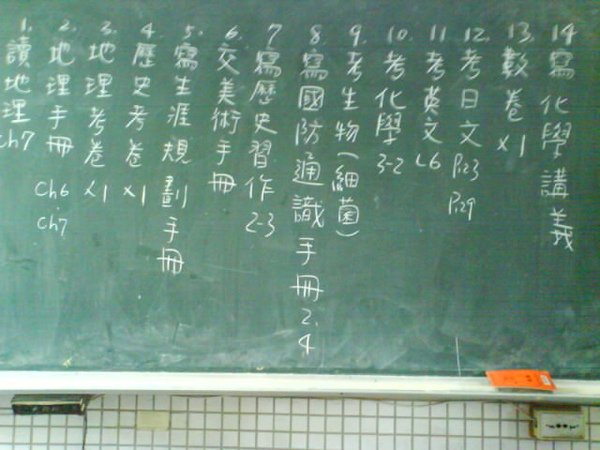 1. 讀地理ch7
2. 地理手冊 ch6. ch7
3. 地理考卷 x1
4. 歷史考卷 x1
5. 寫生涯規劃手冊
6. 交美術手冊
7. 寫歷史習作 2-3
8. 寫國防通識手冊 2. 4
9. 考生物(細菌)
10. 考化學 3-2
11. 考英文 L6
12. 考日文 P.23 P.29
13. 數卷 x1
14. 寫化學講義